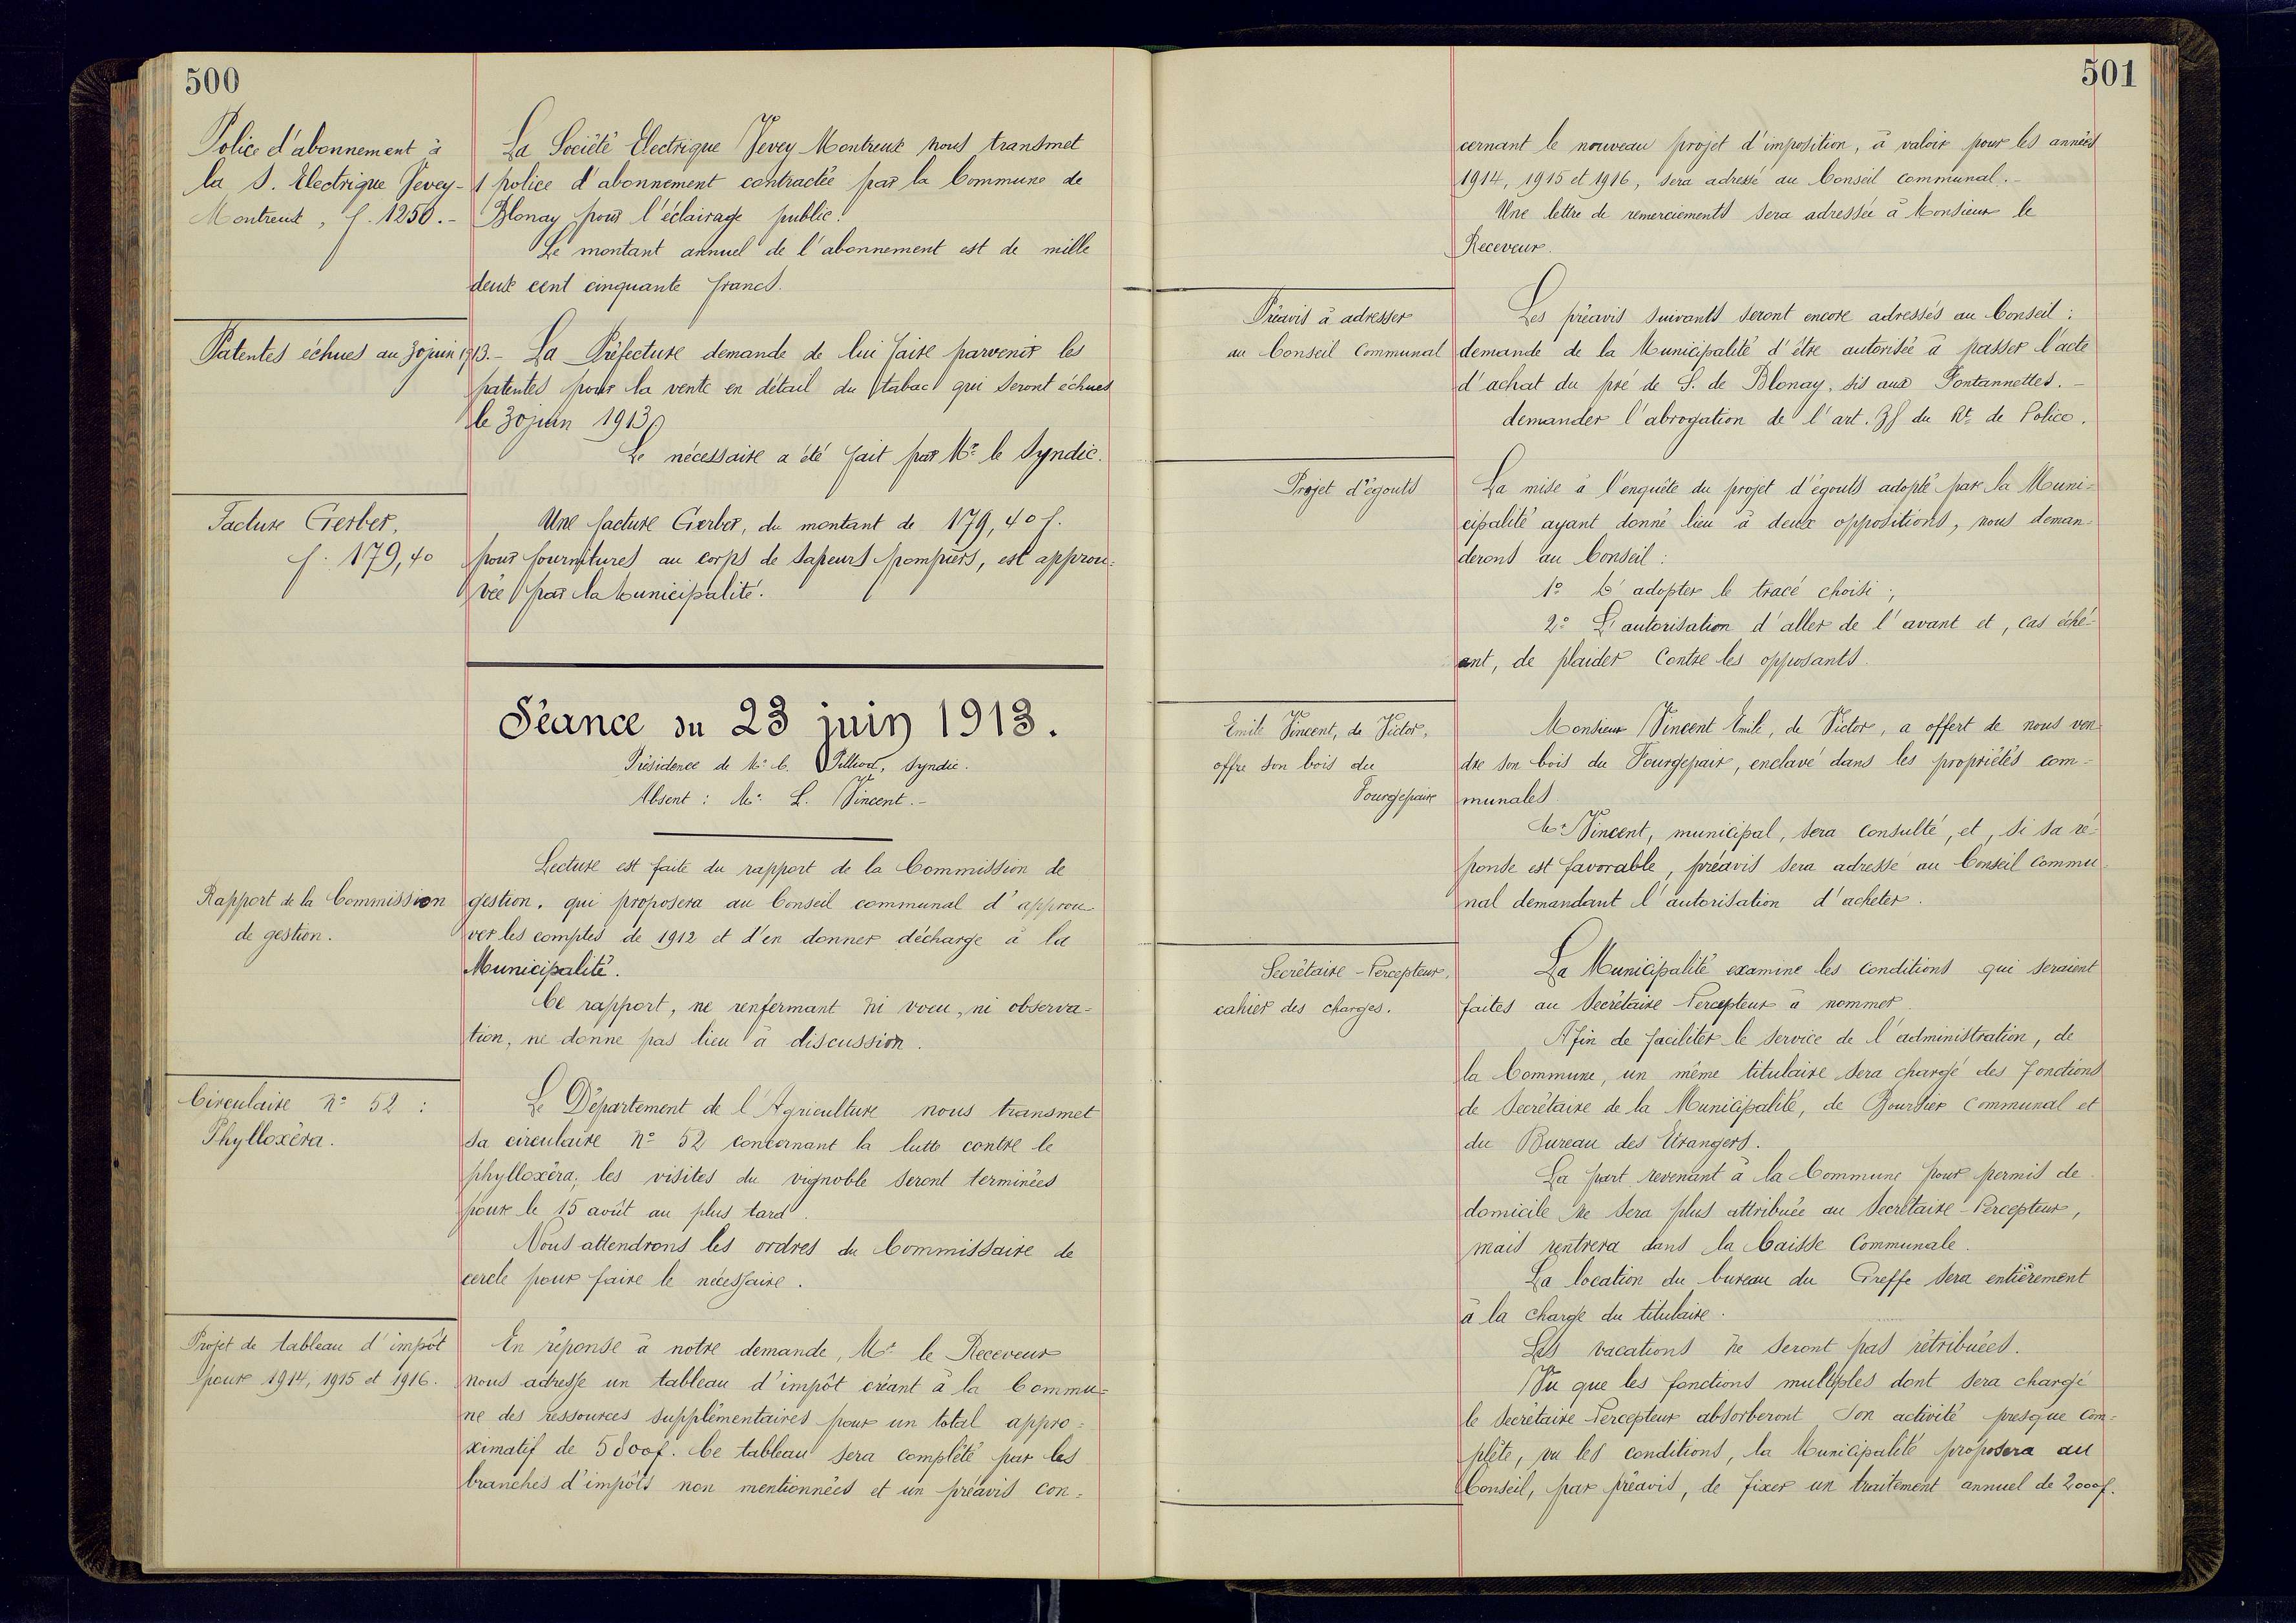 500
Police d'abonnement à
la S. Electrique Vevey-
Montreux, f. 1250.-
La Société Electrique Vevey-Montreux nous transmet
1 police d'abonnement contractée par la Commune de
Blonay pour l'éclairage public.
Le montant annuel de l'abonnement est de mille
deux cent cinquante francs.
Patentes échues au 30 juin 1913.-
La Préfecture demande de lui faire parvenir les
patentes pour la vente en détail du tabac qui seront échues
le 30 juin 1913.
Le nécessaire a été fait par Mr. le Syndic.
Facture Gerber,
f. 179,40
Une facture Gerber, du montant de 179,40 f.
pour fournitures au corps de sapeurs pompiers, est approu-
vée par la Municipalité.
Séance du 23 juin 1913.
Présidence de Mr. C. Pilliod, syndic.
Absent : Mr. L. Vincent.-
Rapport de la Commission
de gestion.
Lecture est faite du rapport de la Commission de
gestion, qui proposera au Conseil communal d'approu-
ver les comptes de 1912 et d'en donner décharge à la
Municipalité.
Ce rapport, ne renfermant ni voeu, ni observa-
tion, ne donne pas lieu à discussion.
Circulaire No 52 :
Phylloxéra.
Le Département de l'Agriculture nous transmet
sa circulaire No 52 concernant la lutte contre le
phylloxéra; les visites du vignoble seront terminées
pour le 15 août au plus tard.
Nous attendrons les ordres du Commissaire de
cercle pour faire le nécessaire.
Projet de tableau d'impôt
pour 1914, 1915 et 1916.
En réponse à notre demande, Mr. le Receveur
nous adresse un tableau d'impôt créant à la Commu-
ne des ressources supplémentaires pour un total appro-
ximatif de 5800f. Ce tableau sera complété par les
branches d'impôts non mentionnées et un préavis con-
501
cernant le nouveau projet d'imposition, à valoir pour les années
1914, 1915 et 1916, sera adressé au Conseil communal.-
Une lettre de remerciements sera adressée à Monsieur le
Receveur.
Préavis à adresser
au Conseil Communal
Les préavis suivants seront encore adressés au Conseil :
demande de la Municipalité d'être autorisée à passer l'acte
d'achat du pré de S. de Blonay, sis aux Fontannettes.-
demander l'abrogation de l'art. du Rt. de Police.
Projet d'égouts
La mise à l'enquête du projet d'égouts adopté par la Muni-
cipalité ayant donné lieu à deux oppositions, nous deman-
derons au Conseil :
1o D'adopter le tracé choisi ;
2o L'autorisation d'aller de l'avant et, cas éché-
ant, de plaider contre les opposants.
Emile Vincent, de Victor,
offre son bois du
Fourgepaix
Monsieur Vincent Emile, de Victor, a offert de nous ven-
dre son bois du Fourgepaix, enclavé dans les propriétés com-
munales.
Mr. Vincent, municipal, sera consulté, et, si sa ré-
ponse est favorable, préavis sera adressé au Conseil commu-
nal demandant l'autorisation d'acheter.
Secrétaire-Percepteur,
cahier des charges.
La Municipalité examine les conditions qui seraient
faites au Secrétaire-Percepteur à nommer.
Afin de faciliter le service de l'administration, de
la Commune, un même titulaire sera chargé des fonctions
de Secrétaire de la Municipalité, de Boursier communal et
du Bureau des Etrangers.
La part revenant à la Commune pour permis de
domicile ne sera plus attribuée au Secrétaire-Percepteur,
mais rentrera dans la Caisse Communale.
La location du bureau du Greffe sera entièrement
à la charge du titulaire.
Les vacations ne seront pas rétribuées.
Vu que les fonctions multiples dont sera chargé
le Secrétaire-Percepteur absorberont son activité presque com-
plète, vu les conditions, la Municipalité proposera au
Conseil, par préavis, de fixer un traitement annuel de 2000f.